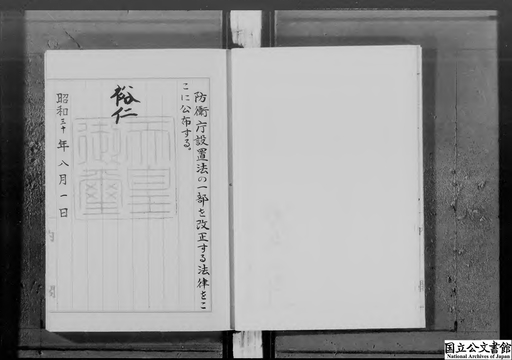 防衛庁設置法の一部を改正する法律をこ
こに公布する。
裕仁
天皇
御璽
昭和三十年八月一日
国立公文書館
National Archives of Japan